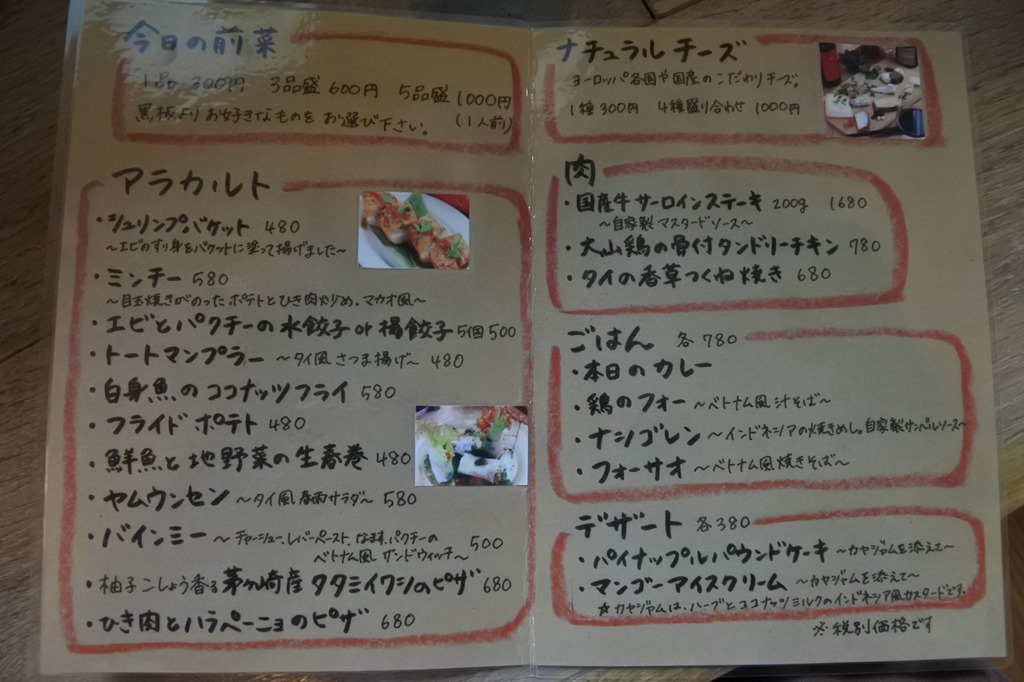 今日の前菜
1品 300円 3品盛 600円 5品盛 1000円
(1人前)
黒板よりお好きなものをお選び下さい。
アラカルト
・シュリンプバケット 480
~エビのすり身をバケットに塗って揚げました~
・ミンチー 580
~目玉焼きがのったポテトとひき肉炒め。マカオ風~
・エビとパクチーの水餃子or揚餃子 5個500
・トートマンプラー ~タイ風さつま揚げ~ 480
・白身魚のココナッツフライ 580
・フライドポテト 480
・鮮魚と地野菜の生春巻 480
・ヤムウンセン ~タイ風春雨サラダ~ 580
・バインミー ~チャーシュー、レバーペースト、なます、パクチーの
ベトナム風サンドウィッチ~ 500
・柚子こしょう香る茅ヶ崎産タタミイワシのピザ 680
・ひき肉とハラペーニョのピザ 680
ナチュラルチーズ
ヨーロッパ各国や国産のこだわりチーズ。
1種300円 4種盛り合わせ 1000円
肉
・国産牛サーロインステーキ 200g 1680
~自家製マスタードソース~
・大山鶏の骨付タンドリーチキン 780
・タイの香草つくね焼き 680
ごはん 各780
・本日のカレー
・鶏のフォー ~ベトナム風汁そば~
・ナシゴレン ~インドネシアの焼きめし。自家製サンバルソース~
・フォーサオ ~ベトナム風焼きそば~
デザート 各380
・パイナップルパウンドケーキ ~カヤジャムを添えて~
・マンゴーアイスクリーム ~カヤジャムを添えて~
☆カヤジャムは、ハーブとココナッツミルクのインドネシア風カスタードです。
※税別価格です